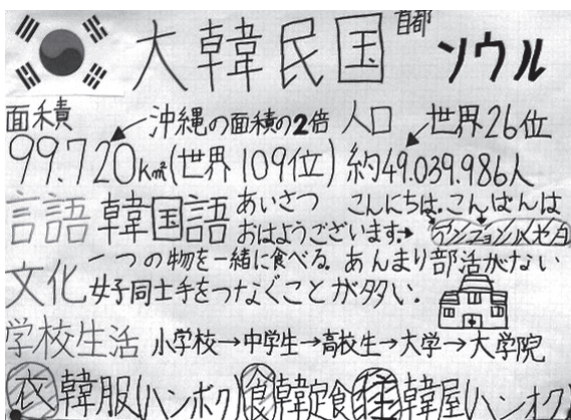 大韓民国 首都 ソウル
面積 沖縄の面積の2倍 人口 世界26位
99.720km²(世界109位) 約49.039.986人
言語 韓国語 あいさつ こんにちは.こんばんは
おはようございます.→アンニョンハセヨ
文化 一つの物を一緒に食べる. あんまり部活がない
女子同士手をつなぐことが多い.
学校生活 小学校→中学生→高校生→大学→大学院
衣韓服(ハンボク)食韓定食住韓屋(ハンオク)